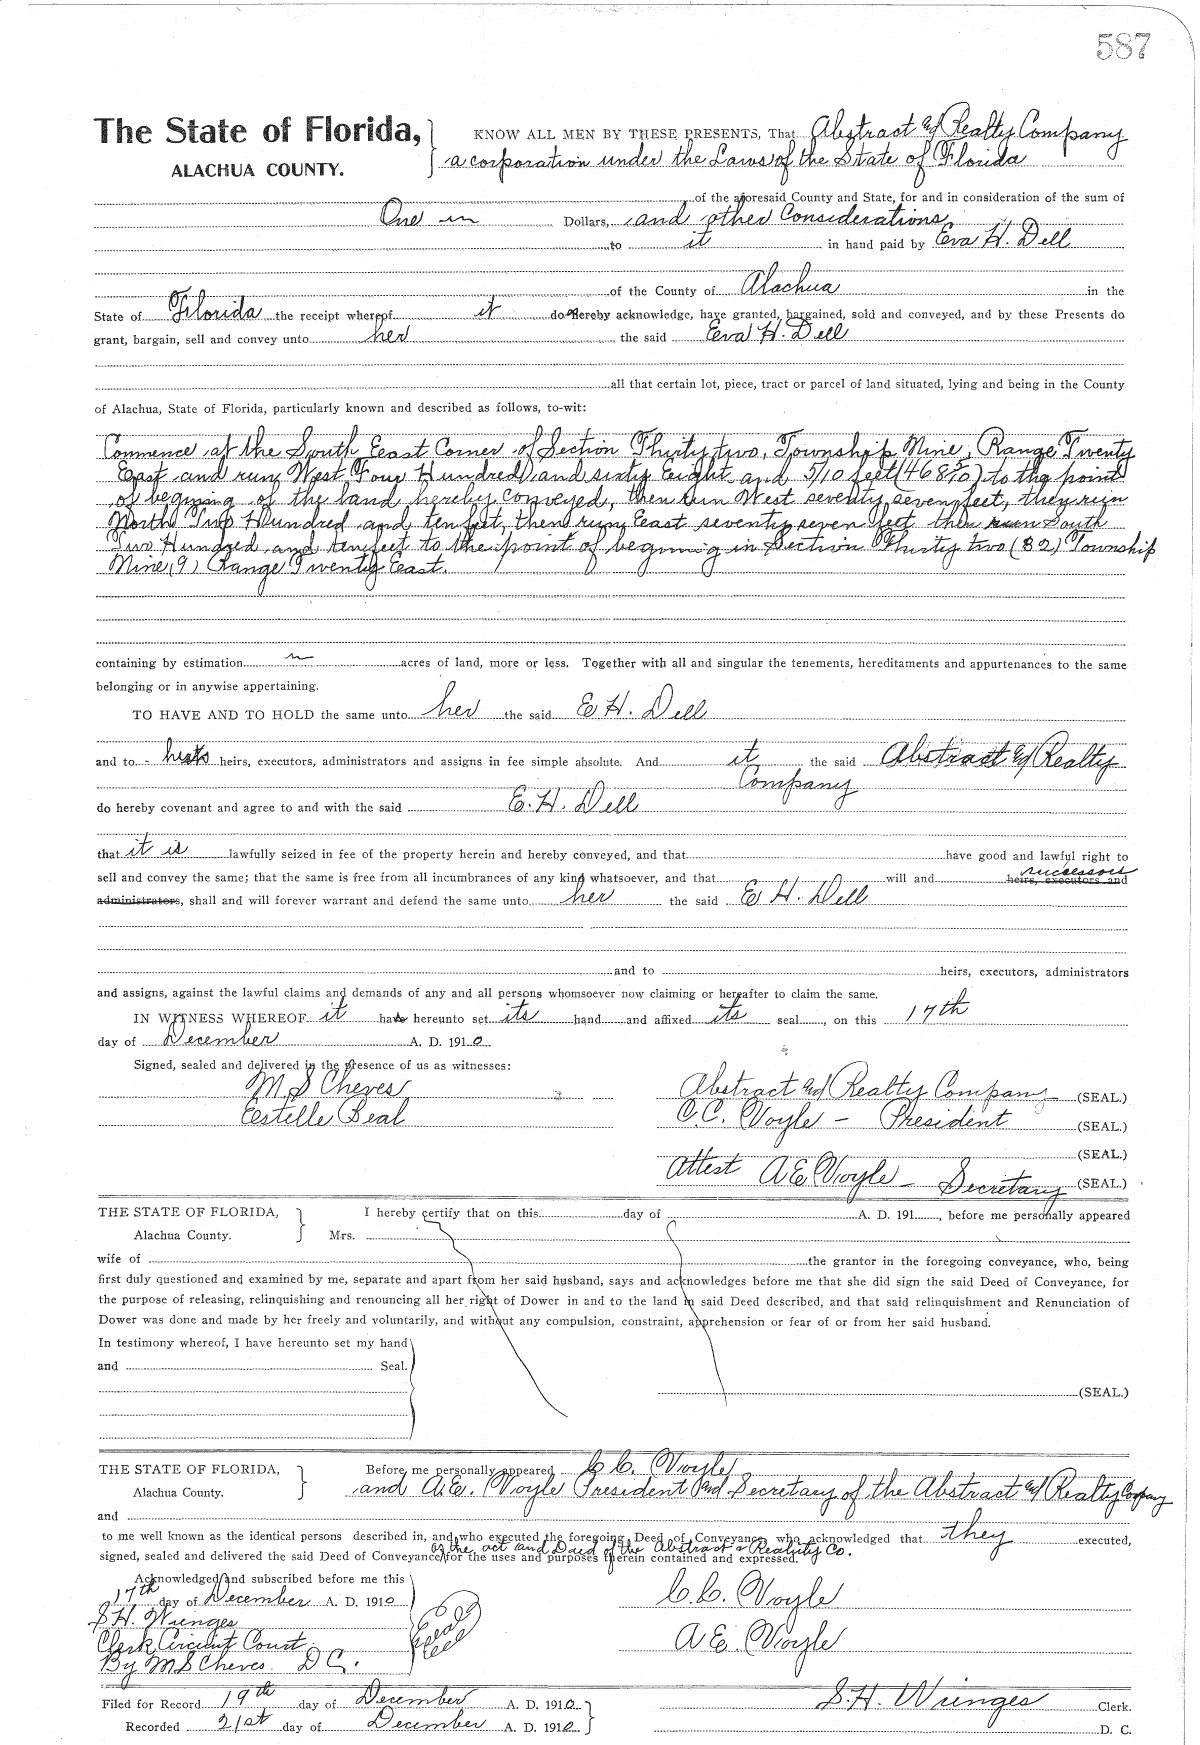 587
The State of Florida,
ALACHUA COUNTY.
KNOW ALL MEN BY THESE PRESENTS, That Abstract and Realty Company
a corporation under the Laws of the State of Florida
of the aforesaid County and State, for and in consideration of the sum of
One Dollars, and other Considerations
to it in hand paid by Eva H. Dell
of the County of Alachua in the
State of Florida the receipt whereof it do hereby acknowledge, have granted, bargained, sold and conveyed, and by these Presents do
grant, bargain, sell and convey unto her the said Eva H. Dell
all that certain lot, piece, tract or parcel of land situated, lying and being in the County
of Alachua, State of Florida, particularly known and described as follows, to-wit:
Commence at the South East Corner of Section Thirty two, Township Nine, Range Twenty
East and run West Four Hundred and sixty Eight and 5/10 feet (468 5/10) to the point
of begning of the land hereby conveyed, then run West seventy seven feet, they run
North Two Hundred and ten feet, then runy East seventy seven feet then run South
Two Hundred and ten feet to the point of begnning in Section Thirty two (32) Township
Nine (9) Range Twenty East.
containing by estimation acres of land, more or less. Together with all and singular the tenements, hereditaments and appurtenances to the same
belonging or in anywise appertaining.
TO HAVE AND TO HOLD the same unto her the said E H. Dell
and to heirs, executors, administrators and assigns in fee simple absolute. And it the said Abstract and Realty
Company
do hereby covenant and agree to and with the said E. H. Dell
that it is lawfully seized in fee of the property herein and hereby conveyed, and that have good and lawful right to
successors
sell and convey the same; that the same is free from all incumbrances of any kind whatsoever, and that will and heirs, executors and
administrators, shall and will forever warrant and defend the same unto her the said E H. Dell
and to heirs, executors, administrators
and assigns, against the lawful claims and demands of any and all persons whomsoever now claiming or hereafter to claim the same.
IN WITNESS WHEREOF it has hereunto set its hand and affixed its seal, on this 17th
day of December A. D. 1910.
Signed, sealed and delivered in the presence of us as witnesses:
M. S Cheves Abstract and Realty Company (SEAL.)
Estille Beal C. C. Voyle - President (SEAL.)
(SEAL.)
Attest A E Voyle - Secretary (SEAL.)
THE STATE OF FLORIDA, I hereby certify that on this day of A. D. 191, before me personally appeared
Alachua County. Mrs.
wife of the grantor in the foregoing conveyance, who, being
first duly questioned and examined by me, separate and apart from her said husband, says and acknowledges before me that she did sign the said Deed of Conveyance, for
the purpose of releasing, relinquishing and renouncing all her right of Dower in and to the land in said Deed described, and that said relinquishment and Renunciation of
Dower was done and made by her freely and voluntarily, and without any compulsion, constraint, apprehension or fear of or from her said husband.
In testimony whereof, I have hereunto set my hand
and Seal.
(SEAL.)
THE STATE OF FLORIDA, Before me personally appeared C. C. Voyle
Alachua County. and A. E. Voyle President and Secretary of the Abstract and Realty Company
and
to me well known as the identical persons described in, and who executed the foregoing Deed of Conveyance, who acknowledged that they executed,
as the act and Deed of the Abstract & Reality Co.
signed, sealed and delivered the said Deed of Conveyance for the uses and purposes therein contained and expressed.
Acknowledged and subscribed before me this
17th day of December A. D. 1910 C. C. Voyle
S. H. Wienges
Clerk Circuit Court A E. Voyle
By M S Cheves D C.
Seal
Filed for Record 19th day of December A. D. 1910. S. H. Wienges Clerk.
Recorded 21st day of December A. D. 1910. D. C.